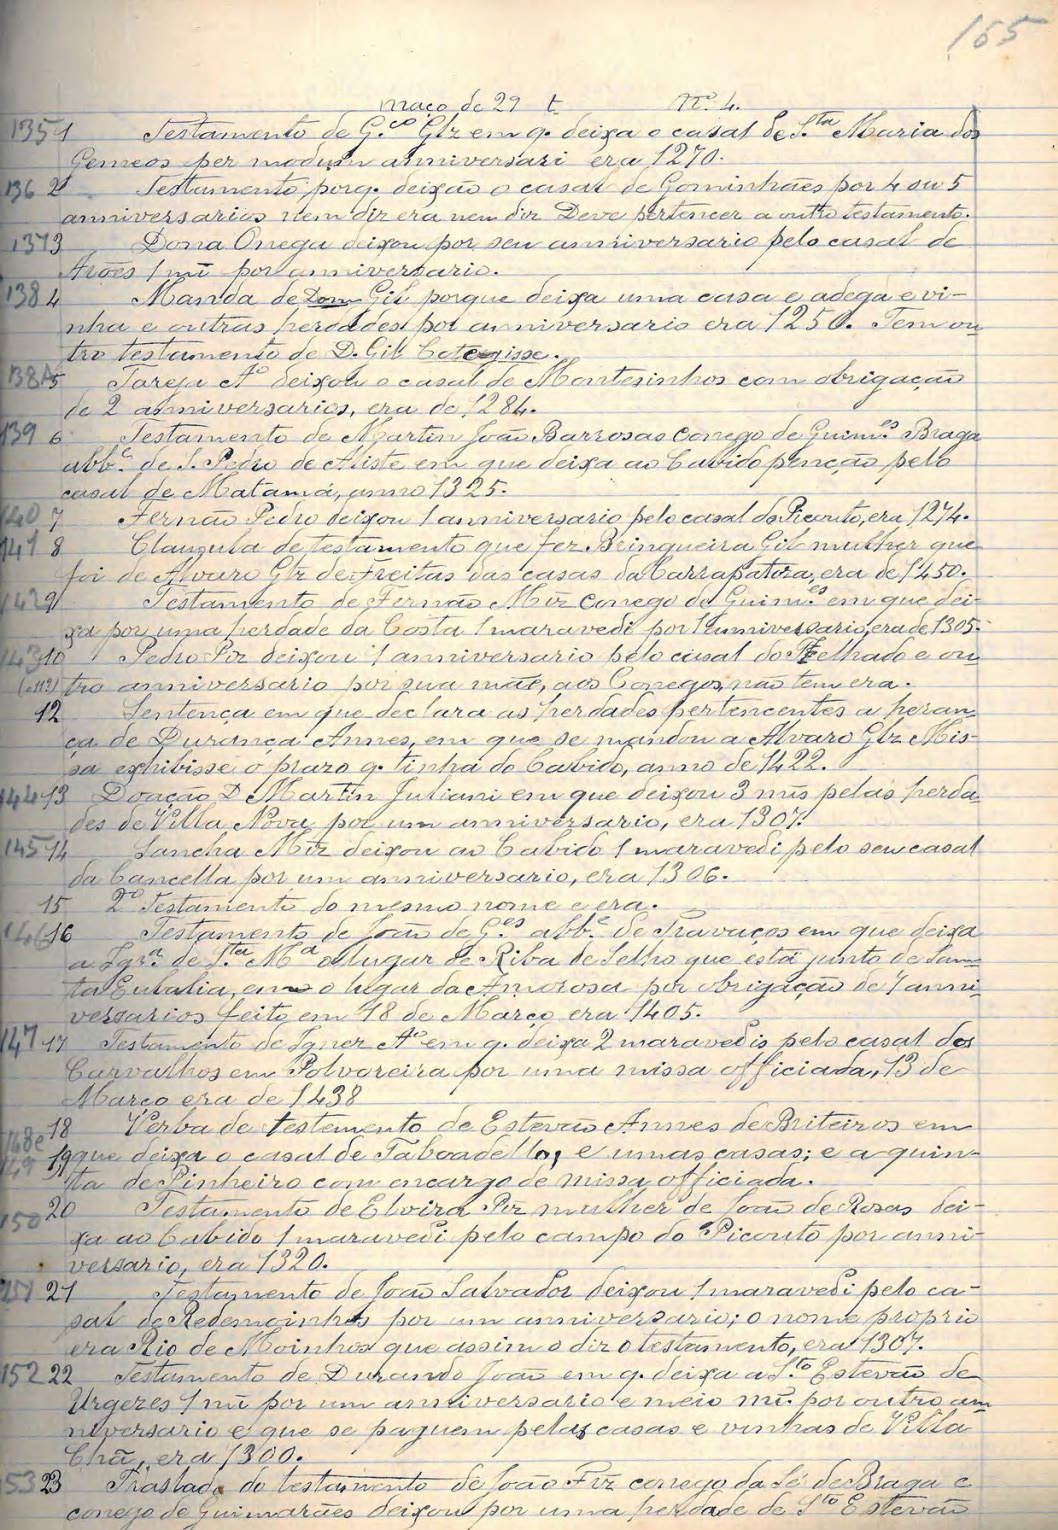 165
Maço de 29 t. Nº 4.
135 1 Testamento de G.ço Glz em q. deixa o casal de S.ta Maria dos
Gemeos per modum anniversari era 1270.
136 2 Testamento porq. deixão o casal de Gominhães por 4 ou 5
anniversarios nem diz era nem diz Deve pertencer a outro testamento.
137 3 Dona Onega deixou por seu anniversario pelo casal de
Arões 1 mī por anniversario.
138 4 Manda de Dom Gil porque deixa uma casa e adega e vi-
nha e outras herdades por anniversario era 1250. Tem ou-
tro testamento de D. Gil
138A 5 Tareja Aº deixou o casal de Montesinhos com obrigação
de 2 anniversarios, era de 1284.
139 6 Testamento de Martin João Barrosas conego de Guim.es Braga
abb.e de S. Pedro de Aliste em que deixa ao Cabido penção pelo
casal de Matamá, anno 1325.
140 7 Fernão Pedro deixou 1 anniversario pelo casal do Picouto, era 1274.
141 8 Clauzula de testamento que fez Bringueira Gil mulher que
foi de Alvaro Glz de Freitas das casas da Carrapatoza, era de 1450.
142 9 Testamento de Fernão Miz conego de Guim.es em que dei-
xa por uma herdade da Costa 1 maravedi por 1 anniversario, era de 1305.
143 10 Pedro Piz deixou 1 anniversario pelo casal do Telhado e ou-
(e 11?) tro anniversario por sua mãe, aos Conegos, não tem era.
12 Sentença em que declara as herdades pertencentes a heran-
ça de Durança Annes, em que se mandou a Alvaro Glz Mis-
sa exhibisse o prazo q. tinha do Cabido, anno de 1422.
144 13 Doação D Martin Juliani em que deixou 3 mīs pelas herda-
des de Villa Nova por um anniversario, era 1307.
145 14 Sancha Miz deixou ao Cabido 1 maravedi pelo seu casal
da Cancella por um anniversario, era 1306.
15 2º Testamento do mesmo nome e era.
146 16 Testamento de João de G.es abb.e de Travaços em que deixa
a Igr.a de S.ta M.a o lugar de Riba de Selho que está junto de San-
ta Eulalia, em o lugar da Amorosa por obrigação de 7 anni-
versarios feito em 18 de Março era 1405.
147 17 Testamento de Ignez Aº em q. deixa 2 maravedis pelo casal dos
Carvalhos em Polvoreira por uma missa officiada, 13 de
Março era de 1438
148 e 18 Verba de testamento de Estevão Annes de Briteiros em
149 19 que deixa o casal de Taboadello, e umas casas; e a quin-
ta de Pinheiro com encargo de missa officiada.
150 20 Testamento de Elvira Piz mulher de João de Rosas dei-
xa ao Cabido 1 maravedi pelo campo do Picouto por anni-
versario, era 1320.
151 21 Testamento de João Salvador deixou 1 maravedi pelo ca-
sal de Redemoinhos por um anniversario; o nome proprio
era Rio de Moinhos que assim o diz o testamento, era 1307.
152 22 Testamento de Durando João em q. deixa a S.to Estevão de
Urgezes 1 mī por um anniversario e meio mī. por outro an-
niversario e que se paguem pelas casas e vinhas de Villa
Chã, era 1300.
153 23 Traslado do testamento de João Piz conego da Sé de Braga e
conego de Guimarães deixou por uma herdade de S.to Estevão